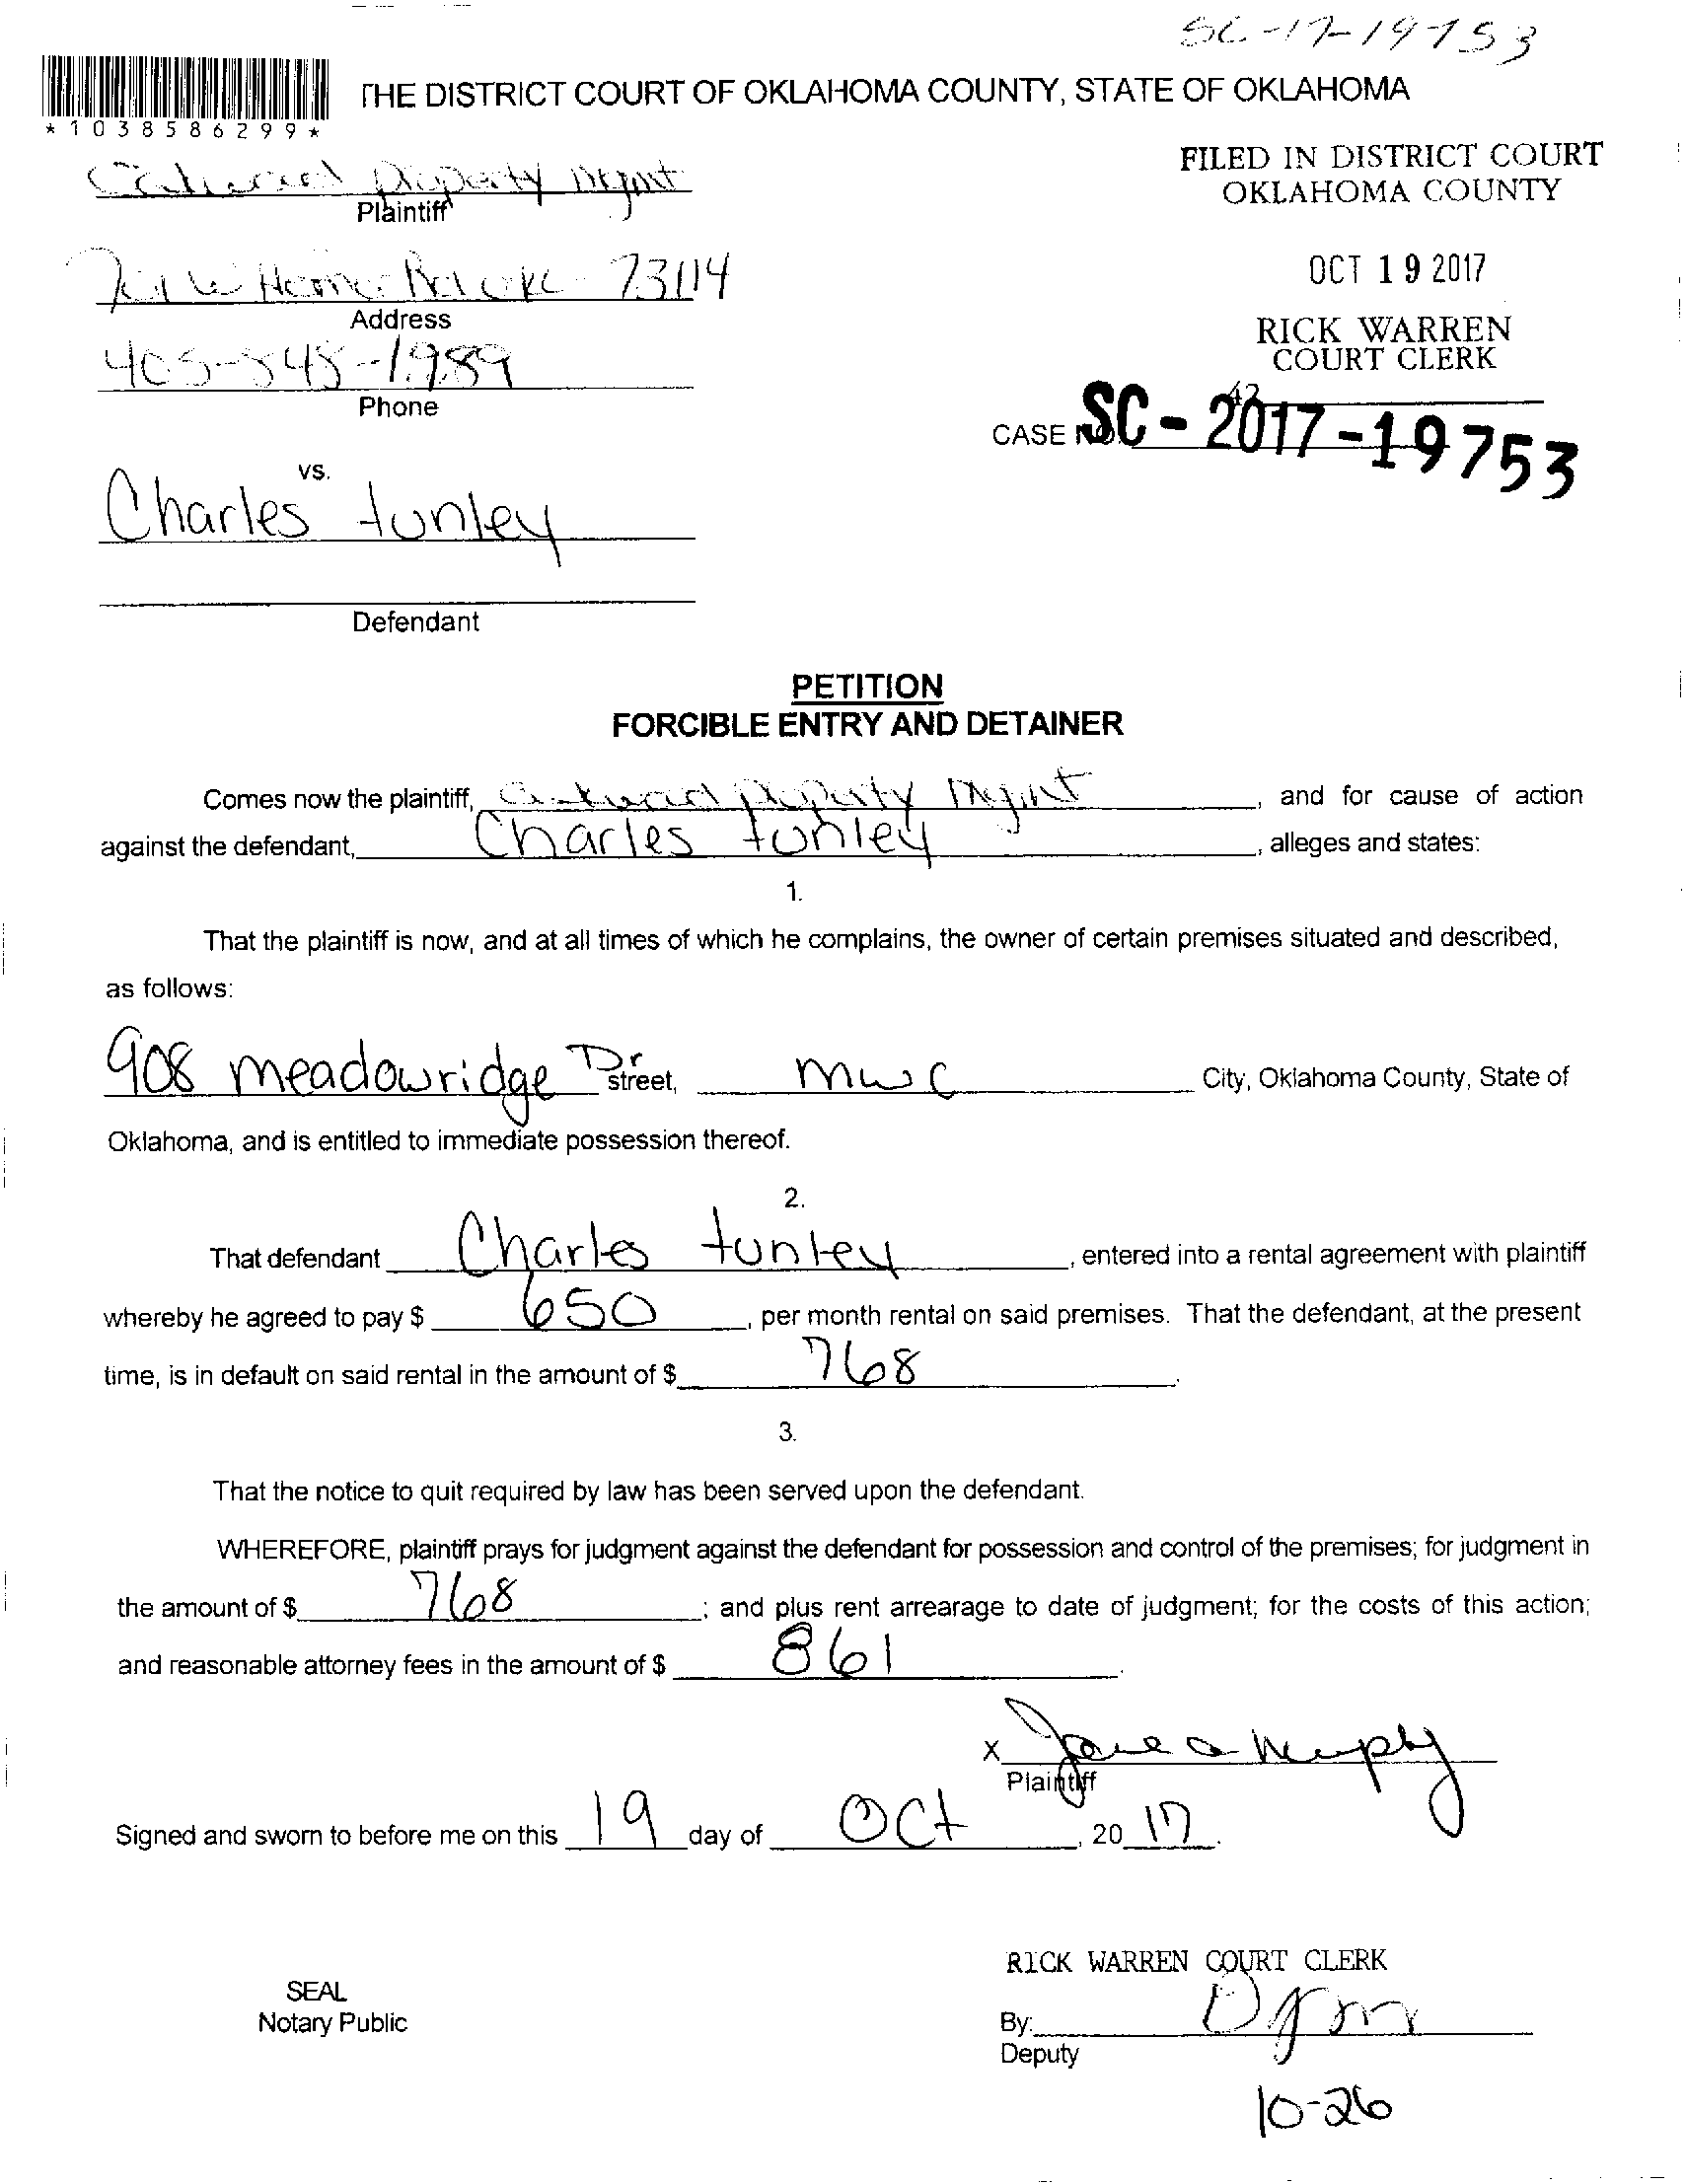 SC-17-19753
THE DISTRICT COURT OF OKLAHOMA COUNTY, STATE OF OKLAHOMA
*1038586299*
FILED IN DISTRICT COURT
OKLAHOMA COUNTY
Property Mgmt
Plaintiff
OCT 19 2017
73114
Address
RICK WARREN
COURT CLERK
405-848-1989
Phone
42
CASE NO. SC-2017-19753
vs.
Charles tunley
Defendant
PETITION
FORCIBLE ENTRY AND DETAINER
Comes now the plaintiff, Property Mgmt, and for cause of action
against the defendant, Charles tunley, alleges and states:
1.
That the plaintiff is now, and at all times of which he complains, the owner of certain premises situated and described,
as follows:
908 meadowridge Dr street, mwc City, Oklahoma County, State of
Oklahoma, and is entitled to immediate possession thereof.
2.
That defendant Charles tunley, entered into a rental agreement with plaintiff
whereby he agreed to pay $ 650, per month rental on said premises. That the defendant, at the present
time, is in default on said rental in the amount of $ 768.
3.
That the notice to quit required by law has been served upon the defendant.
WHEREFORE, plaintiff prays for judgment against the defendant for possession and control of the premises; for judgment in
the amount of $ 768; and plus rent arrearage to date of judgment; for the costs of this action;
and reasonable attorney fees in the amount of $ 861.
x Jane a Murphy
Plaintiff
Signed and sworn to before me on this 19 day of Oct, 20 17.
RICK WARREN COURT CLERK
SEAL
Notary Public
By:
Deputy
10-26